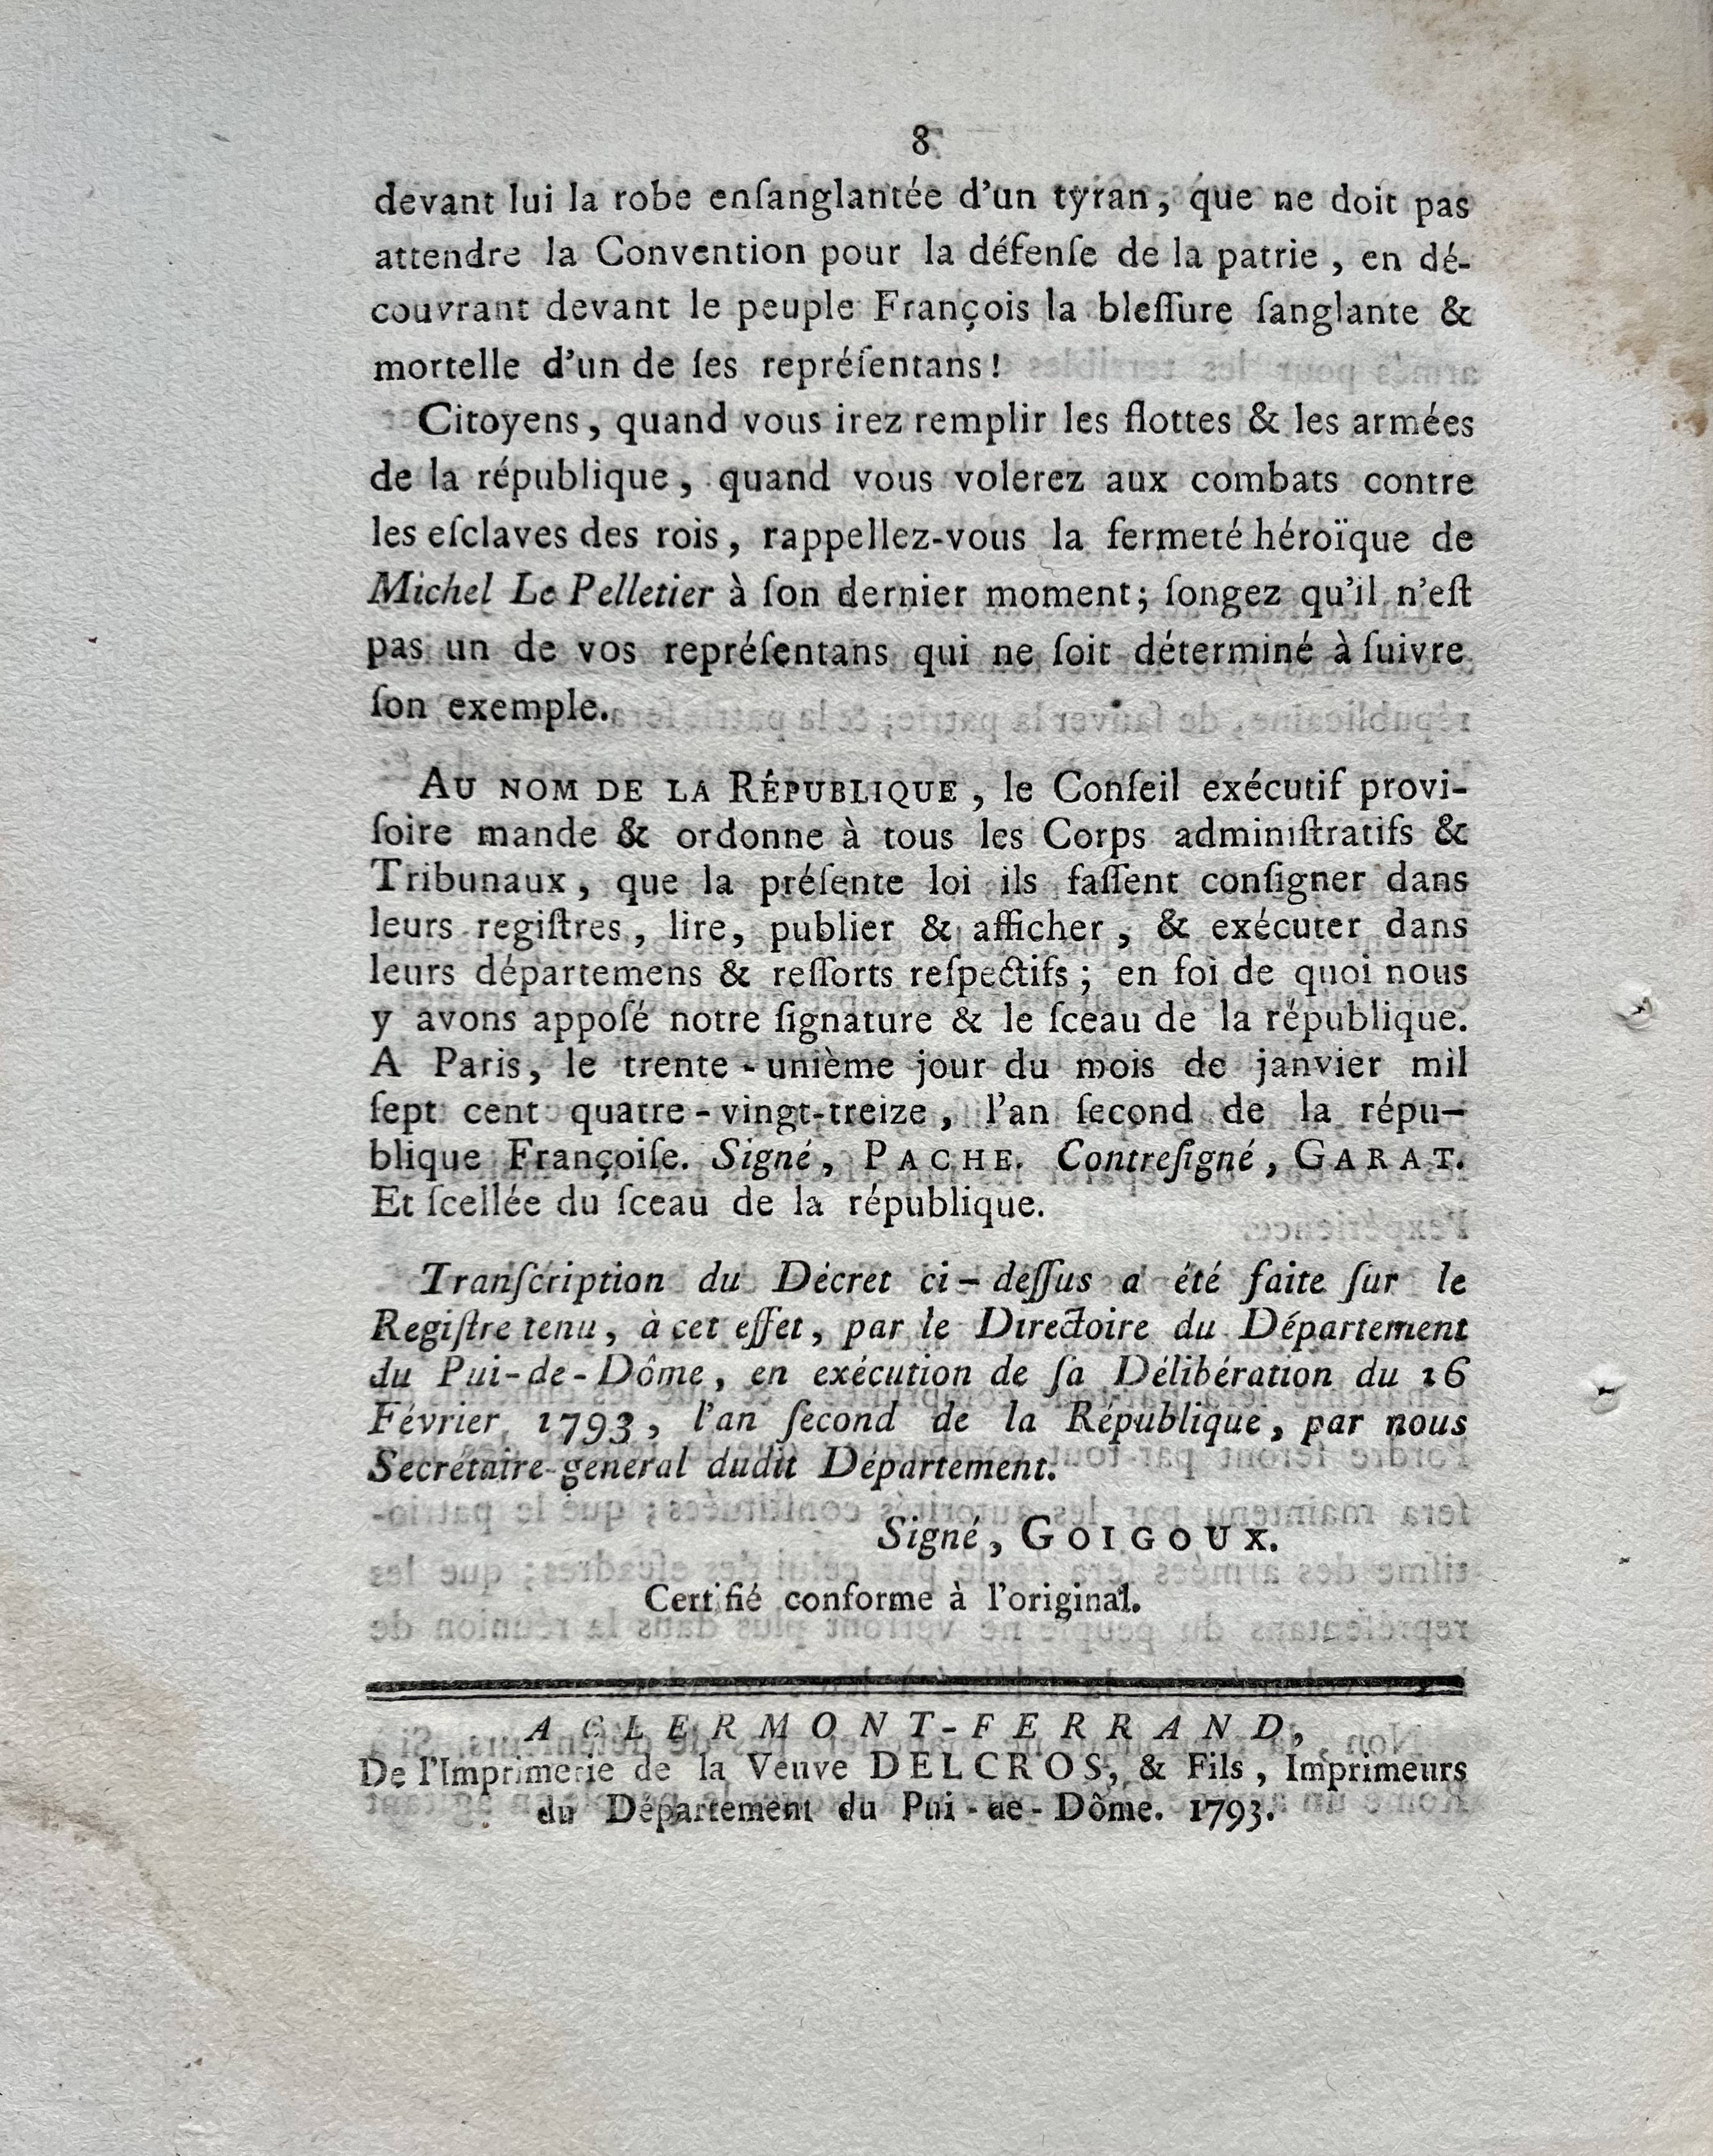 8
devant lui la robe enſanglantée d'un tyran, que ne doit pas
attendre la Convention pour la défenſe de la patrie, en dé-
couvrant devant le peuple François la bleſſure ſanglante &
mortelle d'un de ſes repréſentans!
Citoyens, quand vous irez remplir les flottes & les armées
de la république, quand vous volerez aux combats contre
les eſclaves des rois, rappellez-vous la fermeté héroïque de
Michel Le Pelletier à ſon dernier moment; ſongez qu'il n'eſt
pas un de vos repréſentans qui ne ſoit déterminé à ſuivre
ſon exemple.
AU NOM DE LA RÉPUBLIQUE, le Conſeil exécutif provi-
ſoire mande & ordonne à tous les Corps adminiſtratifs &
Tribunaux, que la préſente loi ils faſſent conſigner dans
leurs regiſtres, lire, publier & afficher, & exécuter dans
leurs départemens & reſſorts reſpectifs; en foi de quoi nous
y avons appoſé notre ſignature & le ſceau de la république.
A Paris, le trente-unième jour du mois de janvier mil
ſept cent quatre-vingt-treize, l'an ſecond de la répu-
blique Françoiſe. Signé, PACHE. Contreſigné, GARAT.
Et ſcellée du ſceau de la république.
Tranſcription du Décret ci-deſſus a été faite ſur le
Regiſtre tenu, à cet effet, par le Directoire du Département
du Pui-de-Dôme, en exécution de ſa Délibération du 16
Février 1793, l'an ſecond de la République, par nous
Secrétaire-général dudit Département.
Signé, GOIGOUX.
Certifié conforme à l'original.
A CLERMONT-FERRAND,
De l'Imprimerie de la Veuve DELCROS, & Fils, Imprimeurs
du Département du Pui-de-Dôme. 1793.